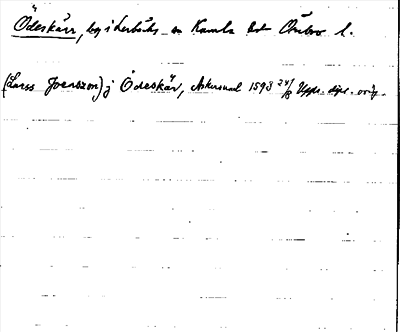 Ödeskärr, by i Lerbäcks sn Kumla hd Örebro l.
(Larss Joenszon) j Ödeskär, Askersund 1593 24/8 Upps. dipl. orig.